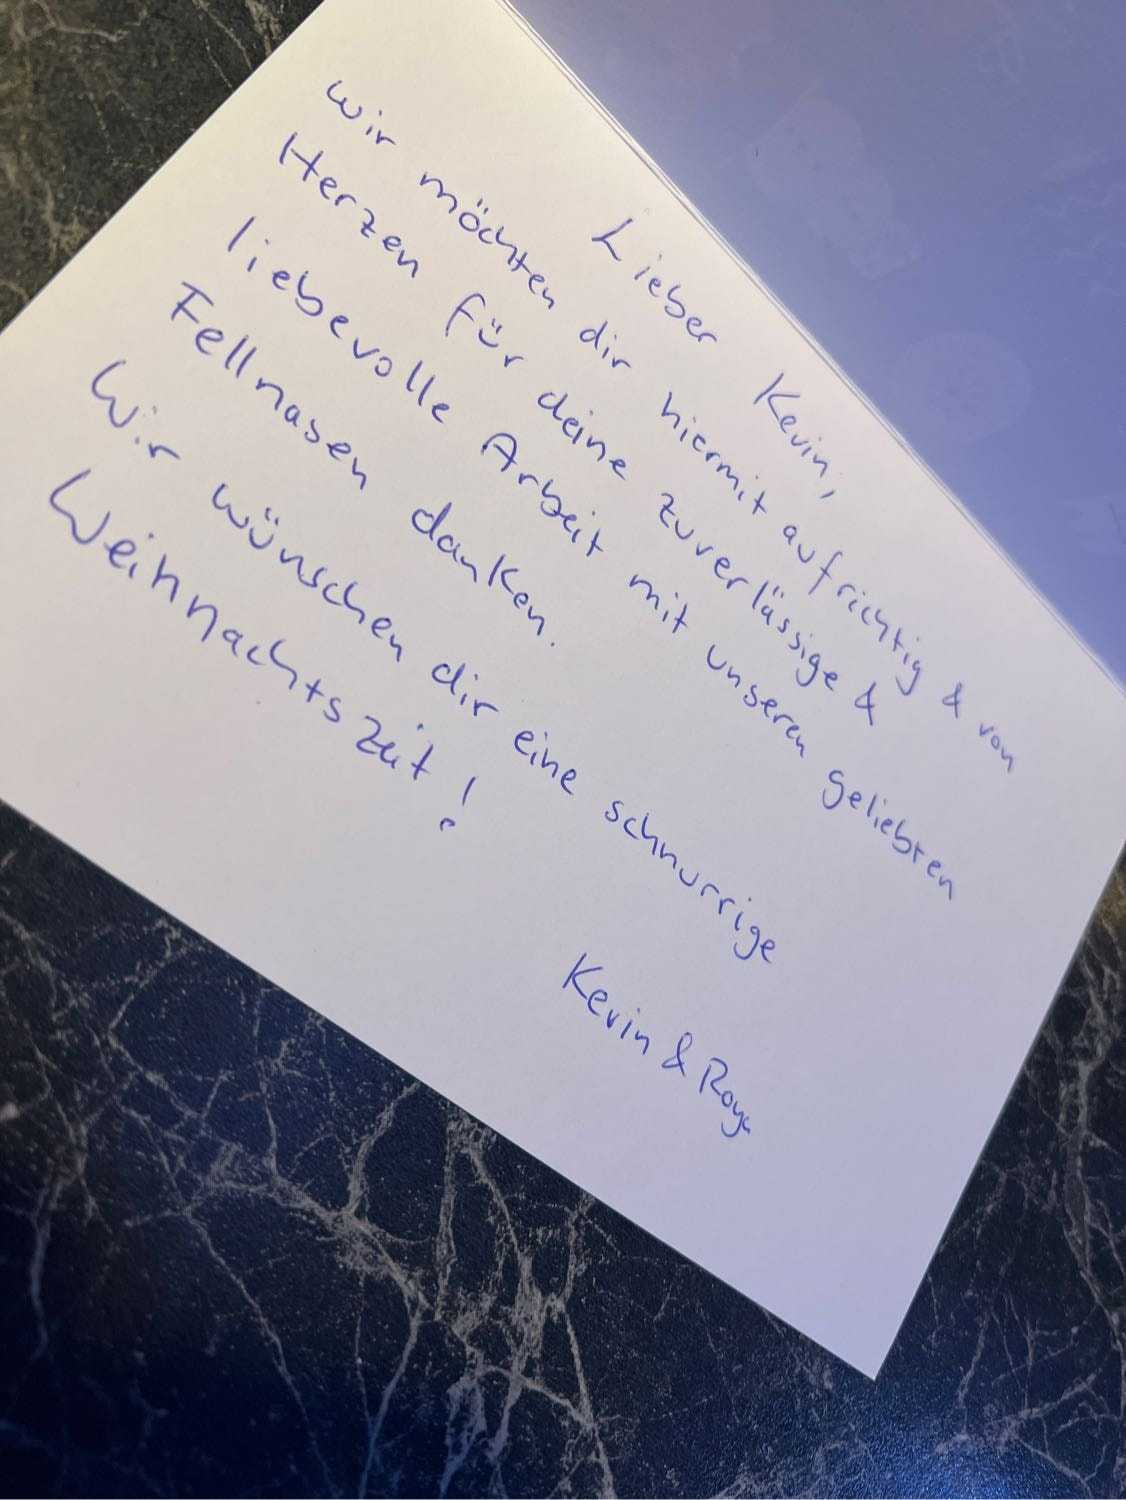 Lieber Kevin,
wir möchten dir hiermit aufrichtig & von
Herzen für deine zuverlässige &
liebevolle Arbeit mit unseren geliebten
Fellnasen danken.
Wir wünschen dir eine schnurrige
Weihnachtszeit!
Kevin & Roya